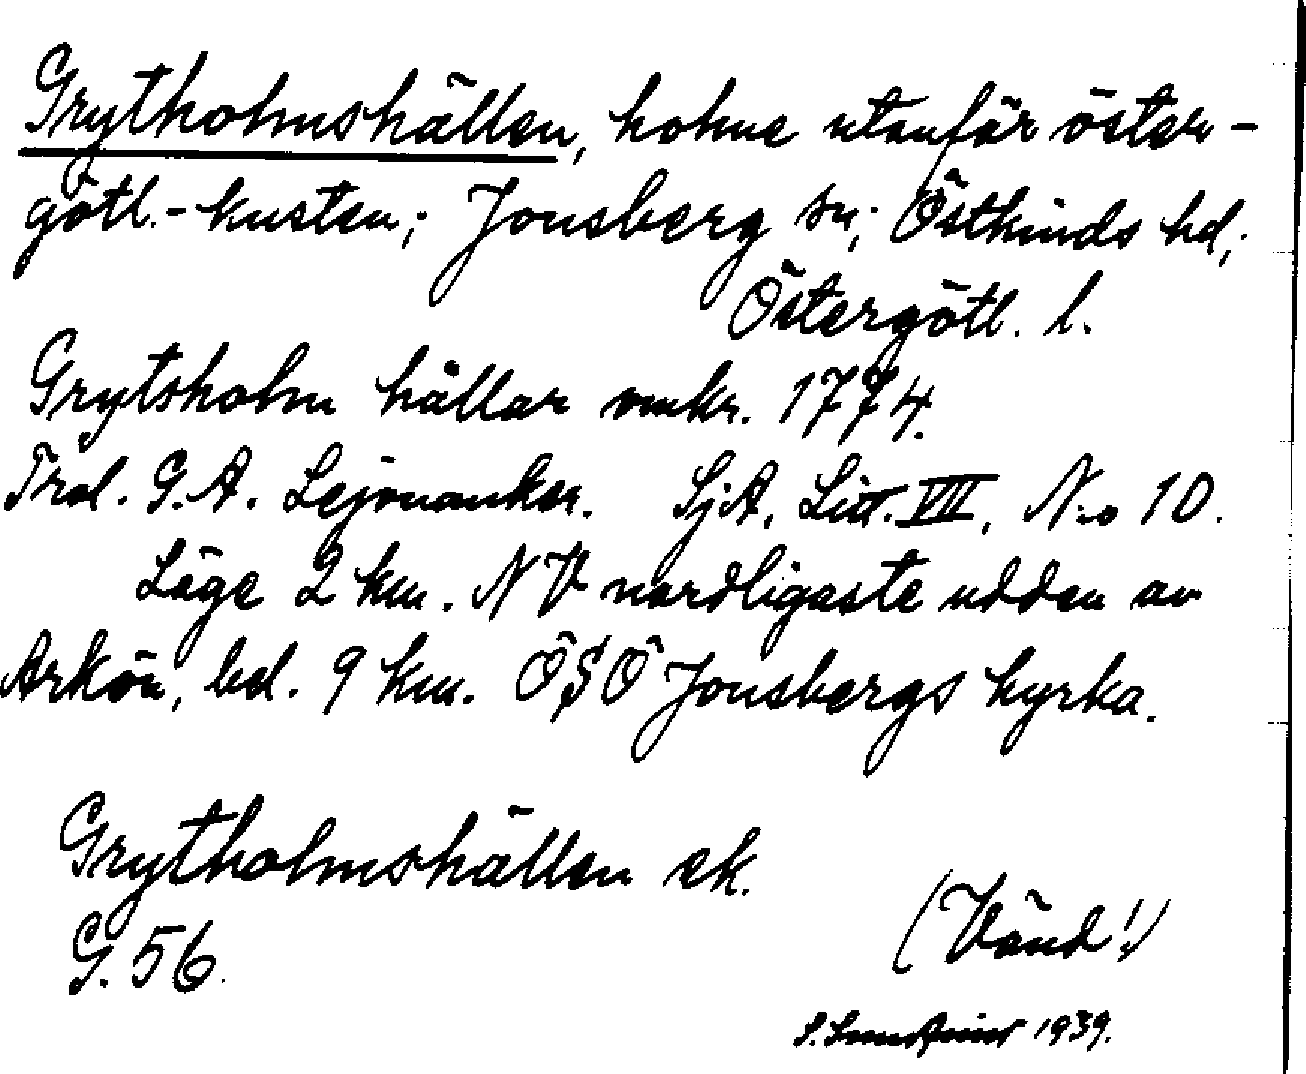 Grytholmshällen, holme utanför öster-
götl.-kusten; Jonsberg sn; Östkinds hd;
Östergötl. l.
Grytsholm hällar omkr. 1774.
Trol. G. A. Lejonanker. SjA, Litt. VII, N:o 10.
Läge 2 km. NV nordligaste udden av
Arkön, bel. 9 km. ÖSÖ Jonsbergs kyrka.
Grytholmshällen ek.
G. 56.
(Vänd!)
1939.